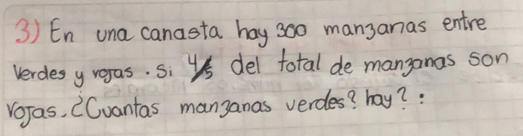 3) En una canasta hay 300 manzanas entre
verdes y rojas. Si 4/5 del total de manzanas son
rojas. ¿Cuantas manzanas verdes? hay?: